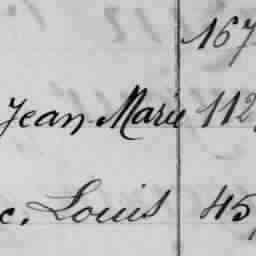 167
Jean Marie 112
c. Louis 45